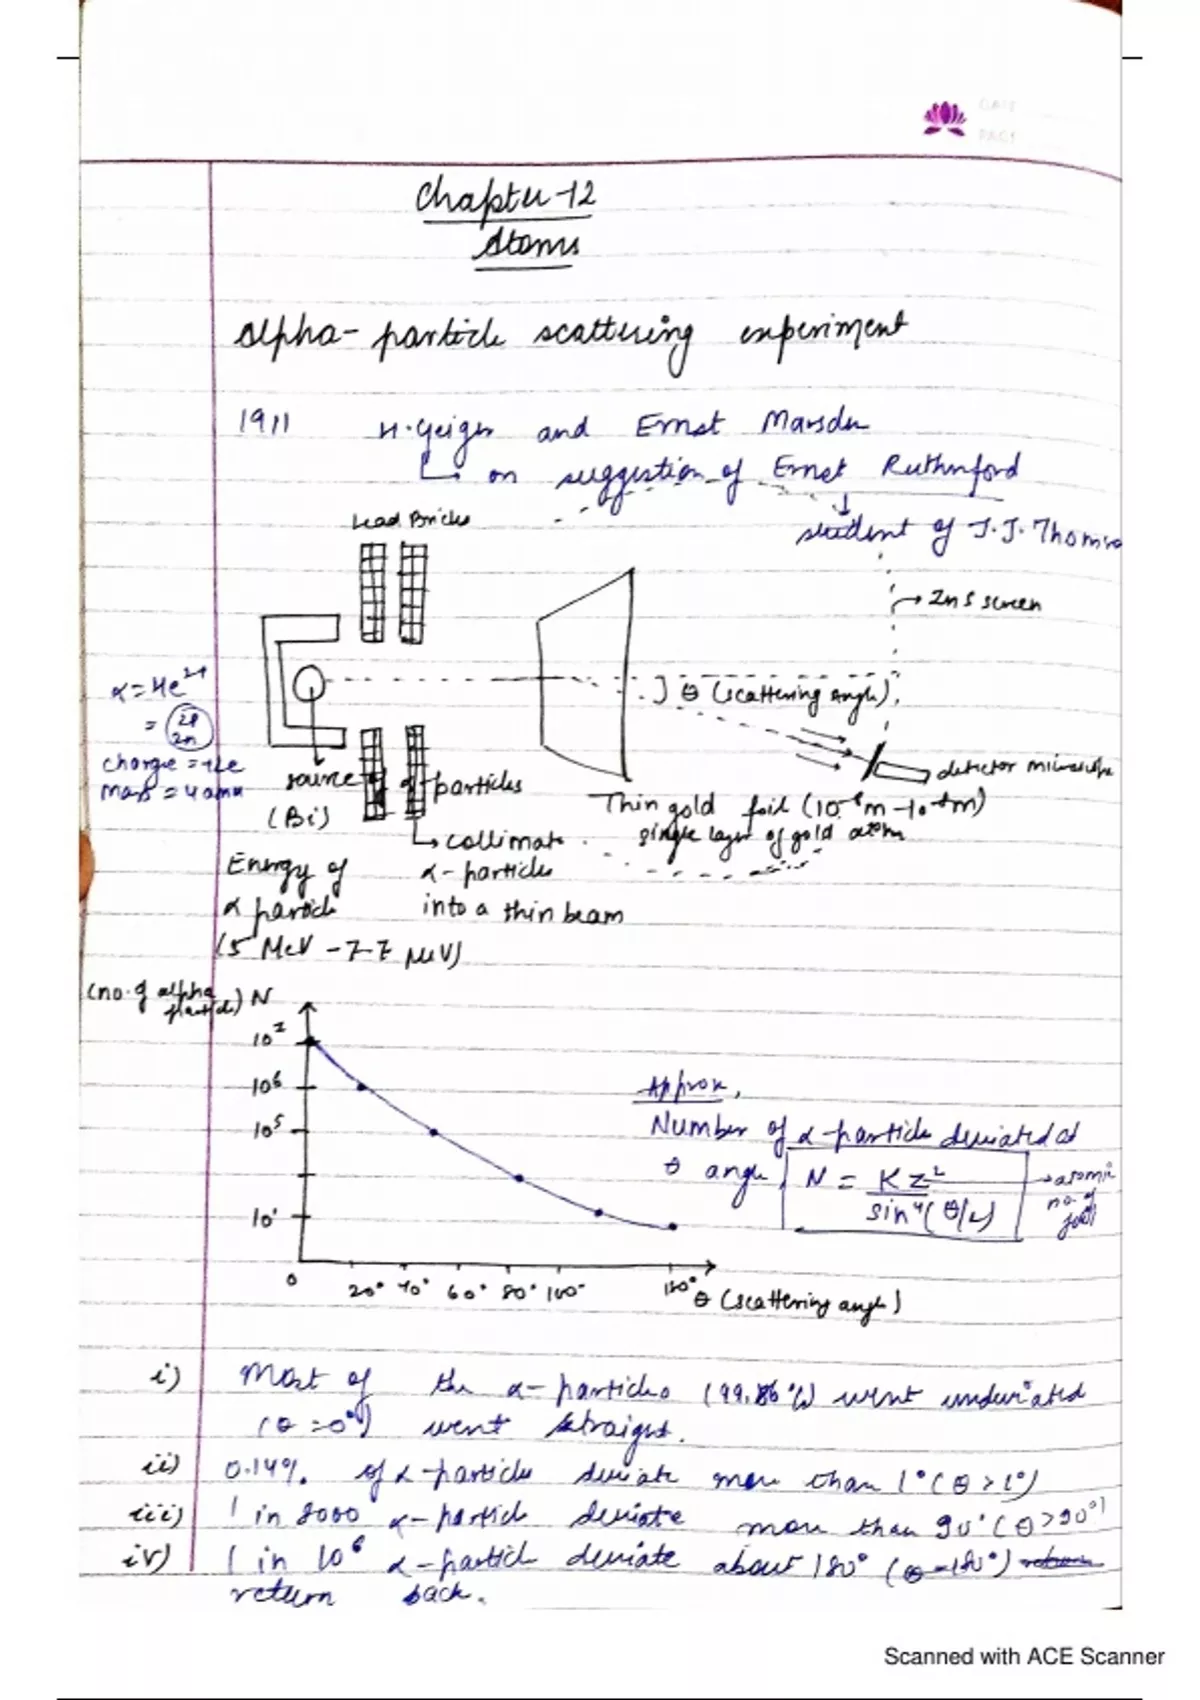 DATE
PAGE
Chapter-12
Atoms
Alpha-particle scattering experiment
1911 H. Geiger and Ernst Marsden
on suggestion of Ernst Rutherford
student of J.J. Thomson
Lead Bricks
ZnS screen
θ (scattering angle)
α = He²⁺
= 2P
2n
charge = +2e
Mass = 4 amu
detector microscope
source of α-particles
(Bi)
Thin gold foil
single layer of gold atom
collimate
α-particles
into a thin beam
Energy of
α particle
(5 MeV - 7.7 MeV)
(no. of alpha particle) N
10⁷
10⁶
10⁵
10¹
0 20° 40° 60° 80° 100° 180° θ (scattering angle)
Approx,
Number of α-particle deviated at
θ angle, N = KZ²
sin⁴(θ/2)
atomic
no. of
foil
i) Most of the α-particles (99.86%) went undeviated
(θ=0°) went straight.
ii) 0.14% of α-particles deviate more than 1° (θ>1°)
iii) 1 in 8000 α-particle deviate more than 90° (θ>90°)
iv) 1 in 10⁶ α-particle deviate about 180° (θ=180°) return
return back.
Scanned with ACE Scanner